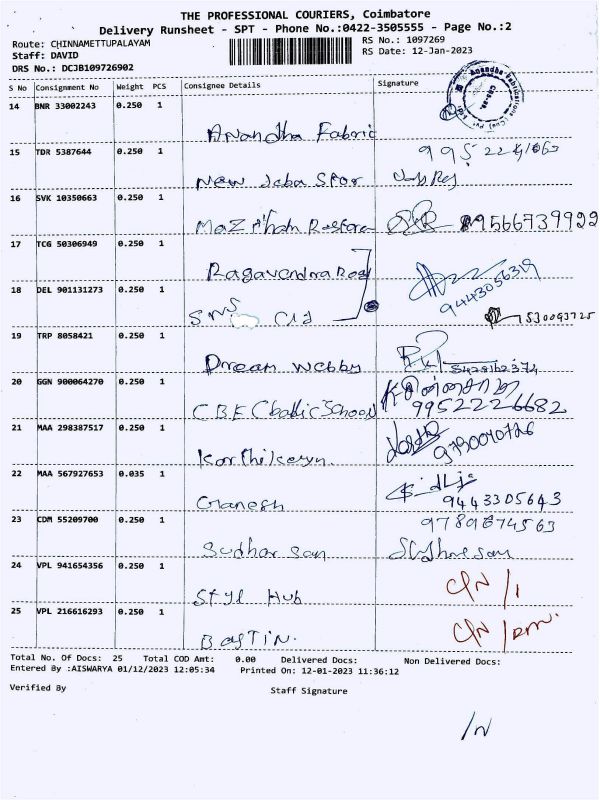 THE PROFESSIONAL COURIERS, Coimbatore
Delivery Runsheet - SPT - Phone No.:0422-3505555 - Page No.:2
Route: CHINNAMETTUPALAYAM
RS No.: 1097269
Staff: DAVID
RS Date: 12-Jan-2023
DRS No.: DCJB109726902
S No Consignment No Weight PCS Consignee Details Signature
14 BNR 33002243 0.250 1
Anandha Fabric
15 TDR 5387644 0.250 1
New Jeba Stor
16 SVK 10350663 0.250 1
9566739922
17 TCG 50306949 0.250 1
Ragavendra
18 DEL 901131273 0.250 1
9443056319
SMS
19 TRP 8058421 0.250 1
Dream Webby
20 GGN 900064270 0.250 1
CBE School 9952226682
21 MAA 298387517 0.250 1
Karthikeyn. 9790040726
22 MAA 567927653 0.035 1
Ganesh 9443305643
23 CDM 55209700 0.250 1
9789674563
Sudhar san
24 VPL 941654356 0.250 1
C/N
Styl Hub
25 VPL 216616293 0.250 1
C/N
BASTIN.
Total No. Of Docs: 25 Total COD Amt: 0.00 Delivered Docs: Non Delivered Docs:
Entered By :AISWARYA 01/12/2023 12:05:34 Printed On: 12-01-2023 11:36:12
Verified By
Staff Signature
/N